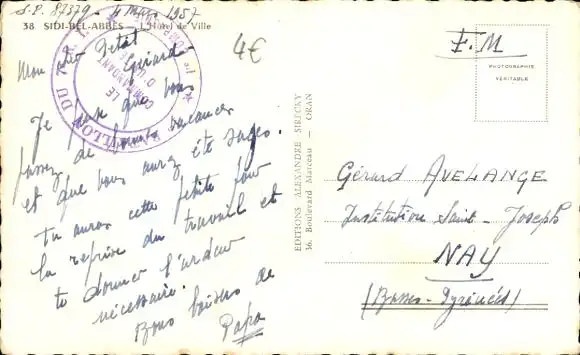 S.P. 87379 - 4 Mars 1957
38 SIDI-BEL-ABBÈS — L'Hôtel de Ville
4€
Mon cher petit Gérard
Je pense que vous
passez de bonnes vacances
et que vous aurez été sages.
Tu auras cette petite pour
la reprise du travail et
te donner l'ardeur
nécessaire.
Bons baisers de
Papa
LE
COMMANDANT
BATAILLON DU
EDITIONS ALEXANDRE SIRECKY
36, Boulevard Marceau — ORAN
F.M
PHOTOGRAPHIE
VÉRITABLE
Gérard AVELANGE
Institution Saint-Joseph
NAY
(Basses-Pyrénées)